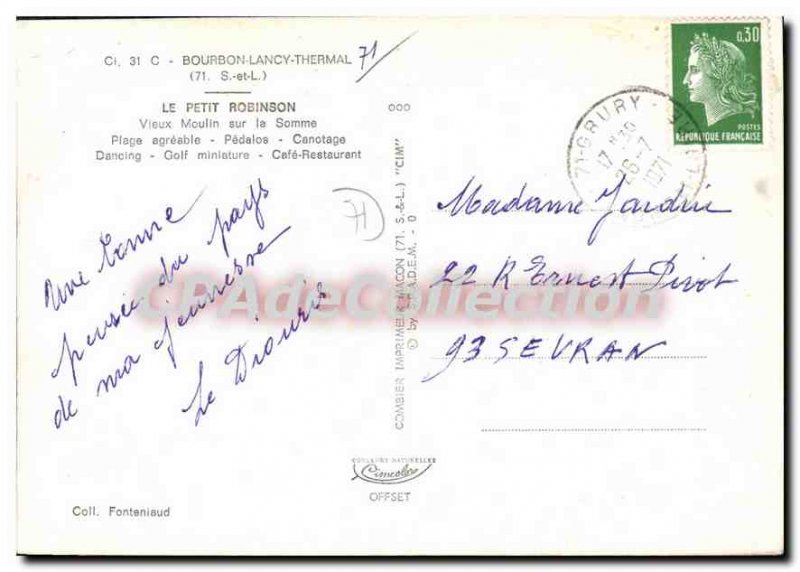 Ci. 31 C - BOURBON-LANCY-THERMAL
(71. S.-et-L.)
71
LE PETIT ROBINSON
Vieux Moulin sur la Somme
Plage agréable - Pédalos - Canotage
Dancing - Golf miniature - Café-Restaurant
Une bonne
pensée du pays
de ma jeunesse
Le
Coll. Fonteniaud
71
COMBIER IMPRIMEUR MACON (71. S.-&-L.) "CIM"
© by S.P.A.D.E.M. - 0
COULEURS NATURELLES
Cimcolor
OFFSET
0,30
POSTES
RÉPUBLIQUE FRANÇAISE
71-GRURY
17 H30
26-7
1971
Madame Jardin
22 R Ernest Pivot
93 SEVRAN
CPAdeCollection